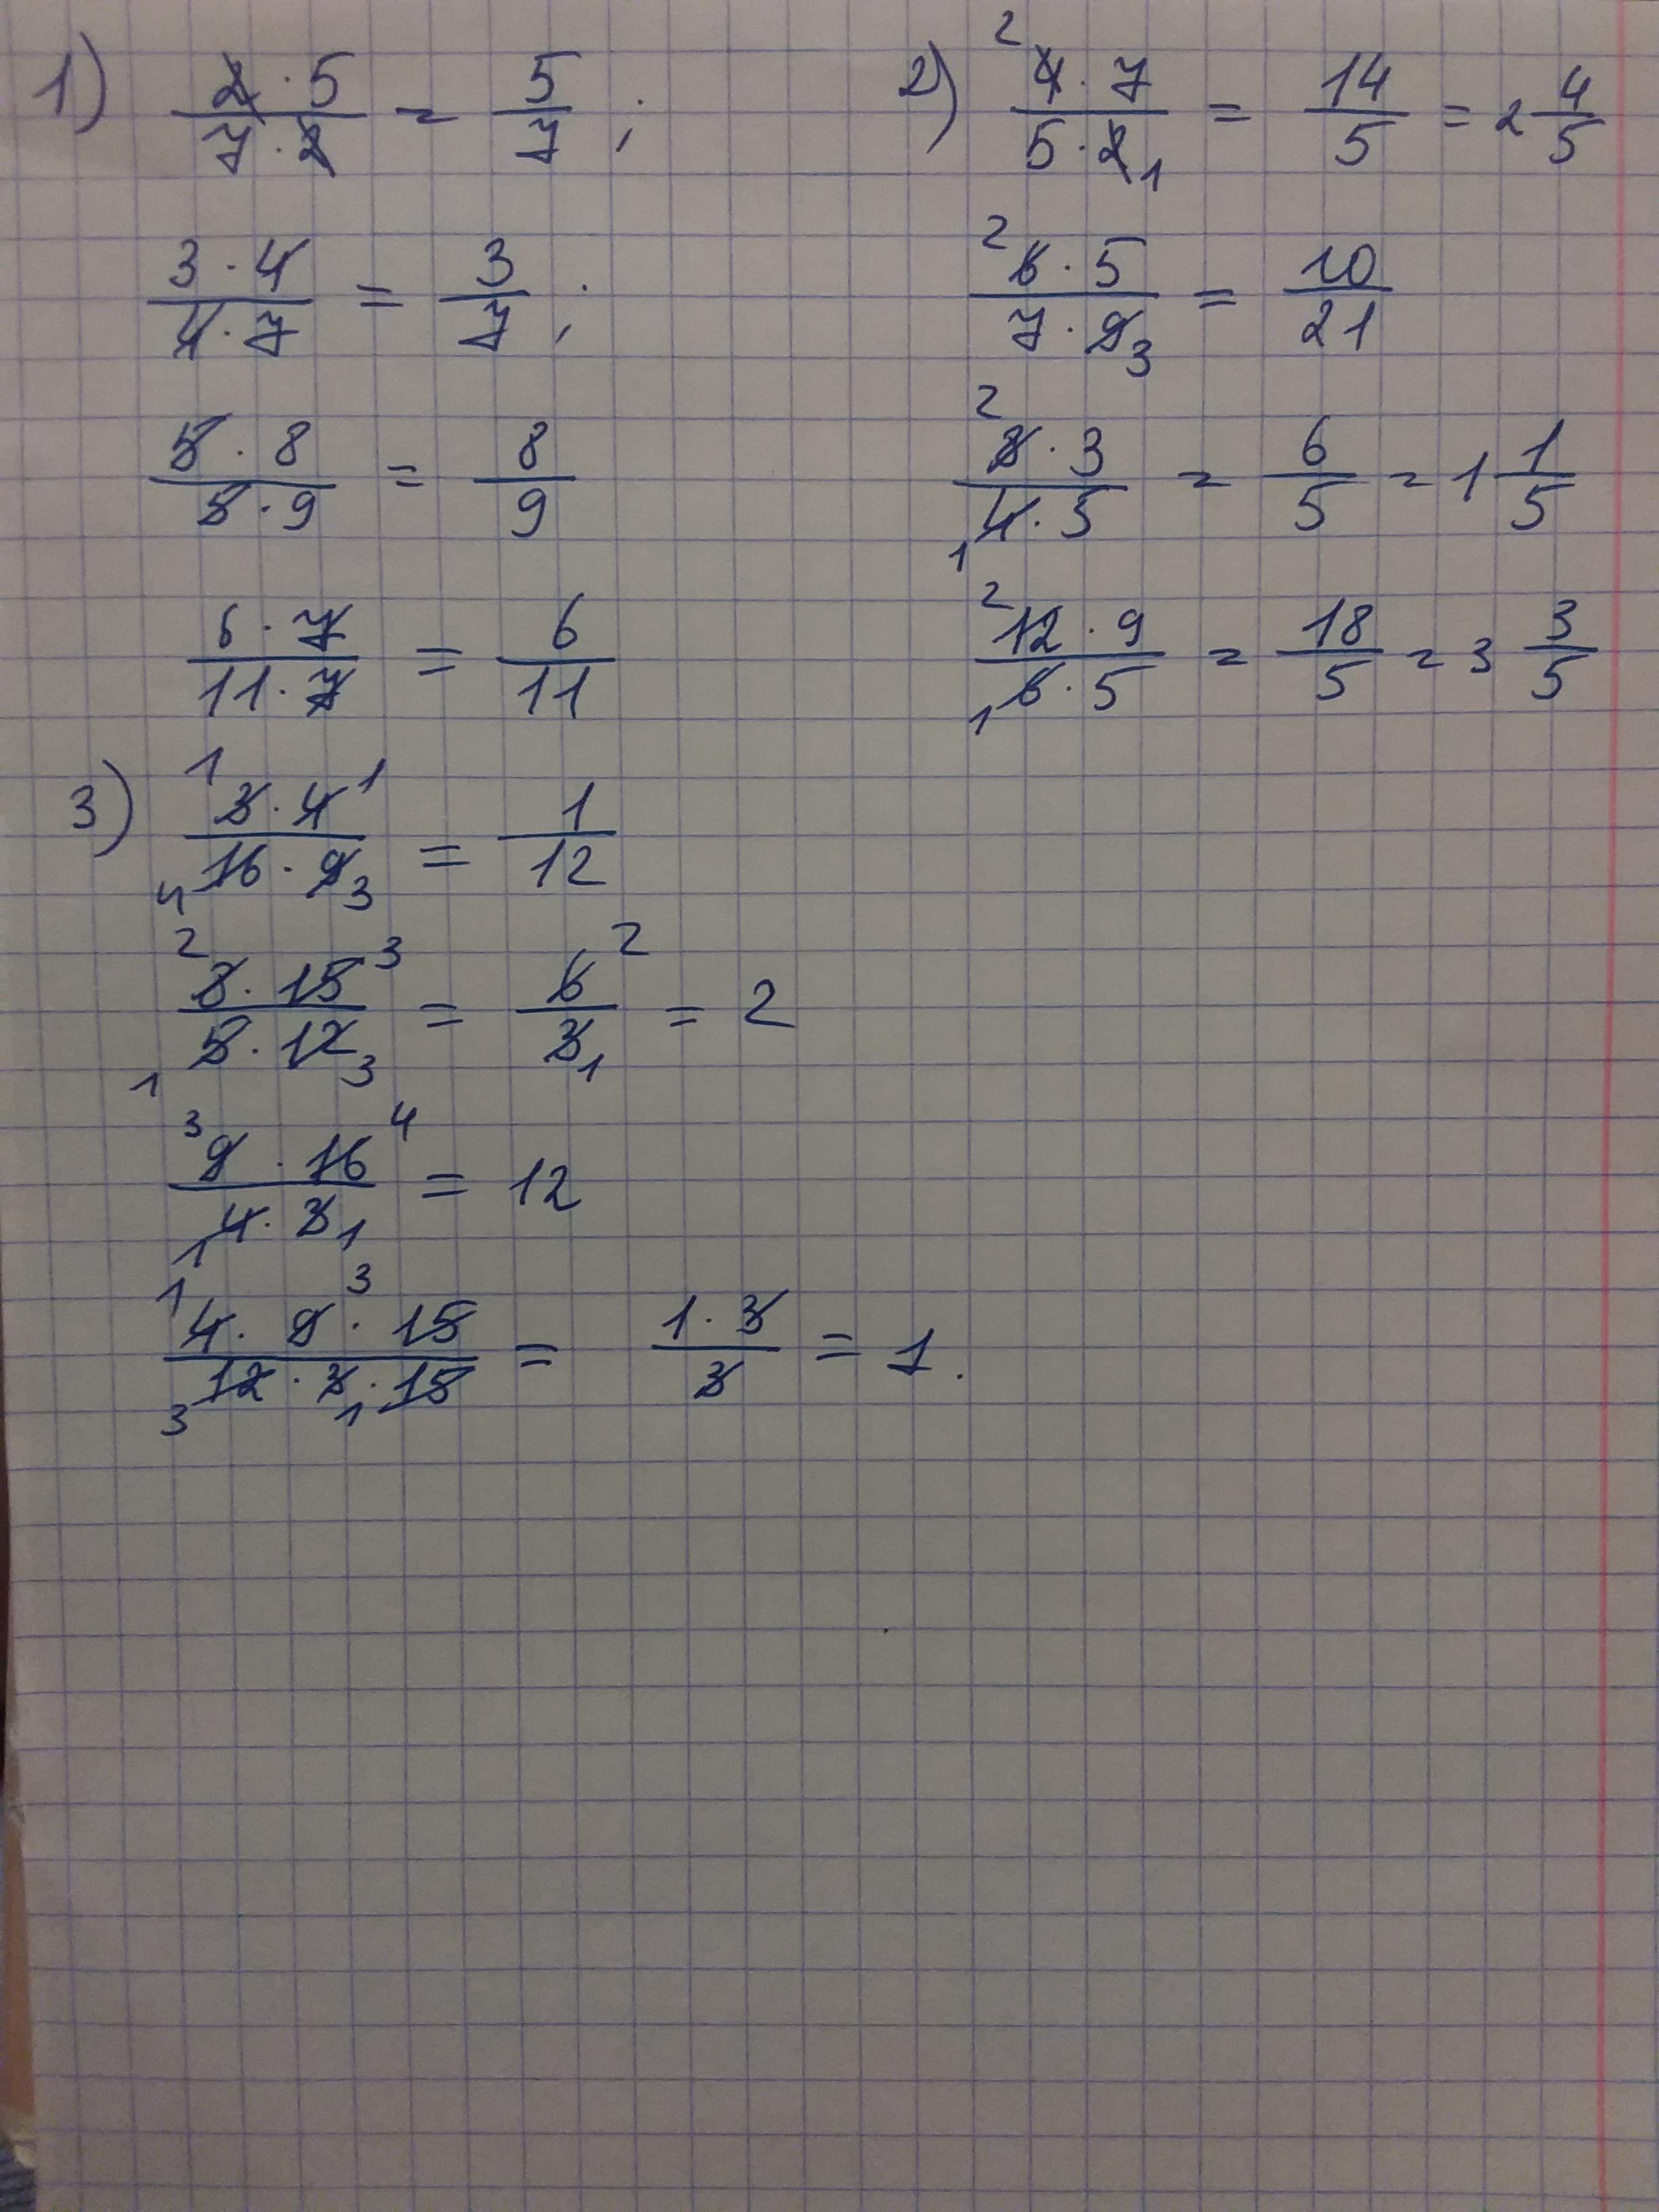 1) (2 · 5)/(7 · 2) = 5/7 ;
(3 · 4)/(4 · 7) = 3/7 ;
(5 · 8)/(5 · 9) = 8/9
(6 · 7)/(11 · 7) = 6/11
2) (4² · 7)/(5 · 2₁) = 14/5 = 2 4/5
(²6 · 5)/(7 · 9₃) = 10/21
(²8 · 3)/(₁4 · 5) = 6/5 = 1 1/5
(²12 · 9)/(₁6 · 5) = 18/5 = 3 3/5
3) (¹3 · 4¹)/(₄16 · 9₃) = 1/12
(²8 · 15³)/(₁5 · 12₃) = 6²/3₁ = 2
(³9 · 16⁴)/(₁4 · 3₁) = 12
(¹4 · 9³ · 15)/(₃12 · 3₁ · 15) = (1 · 3)/3 = 1.